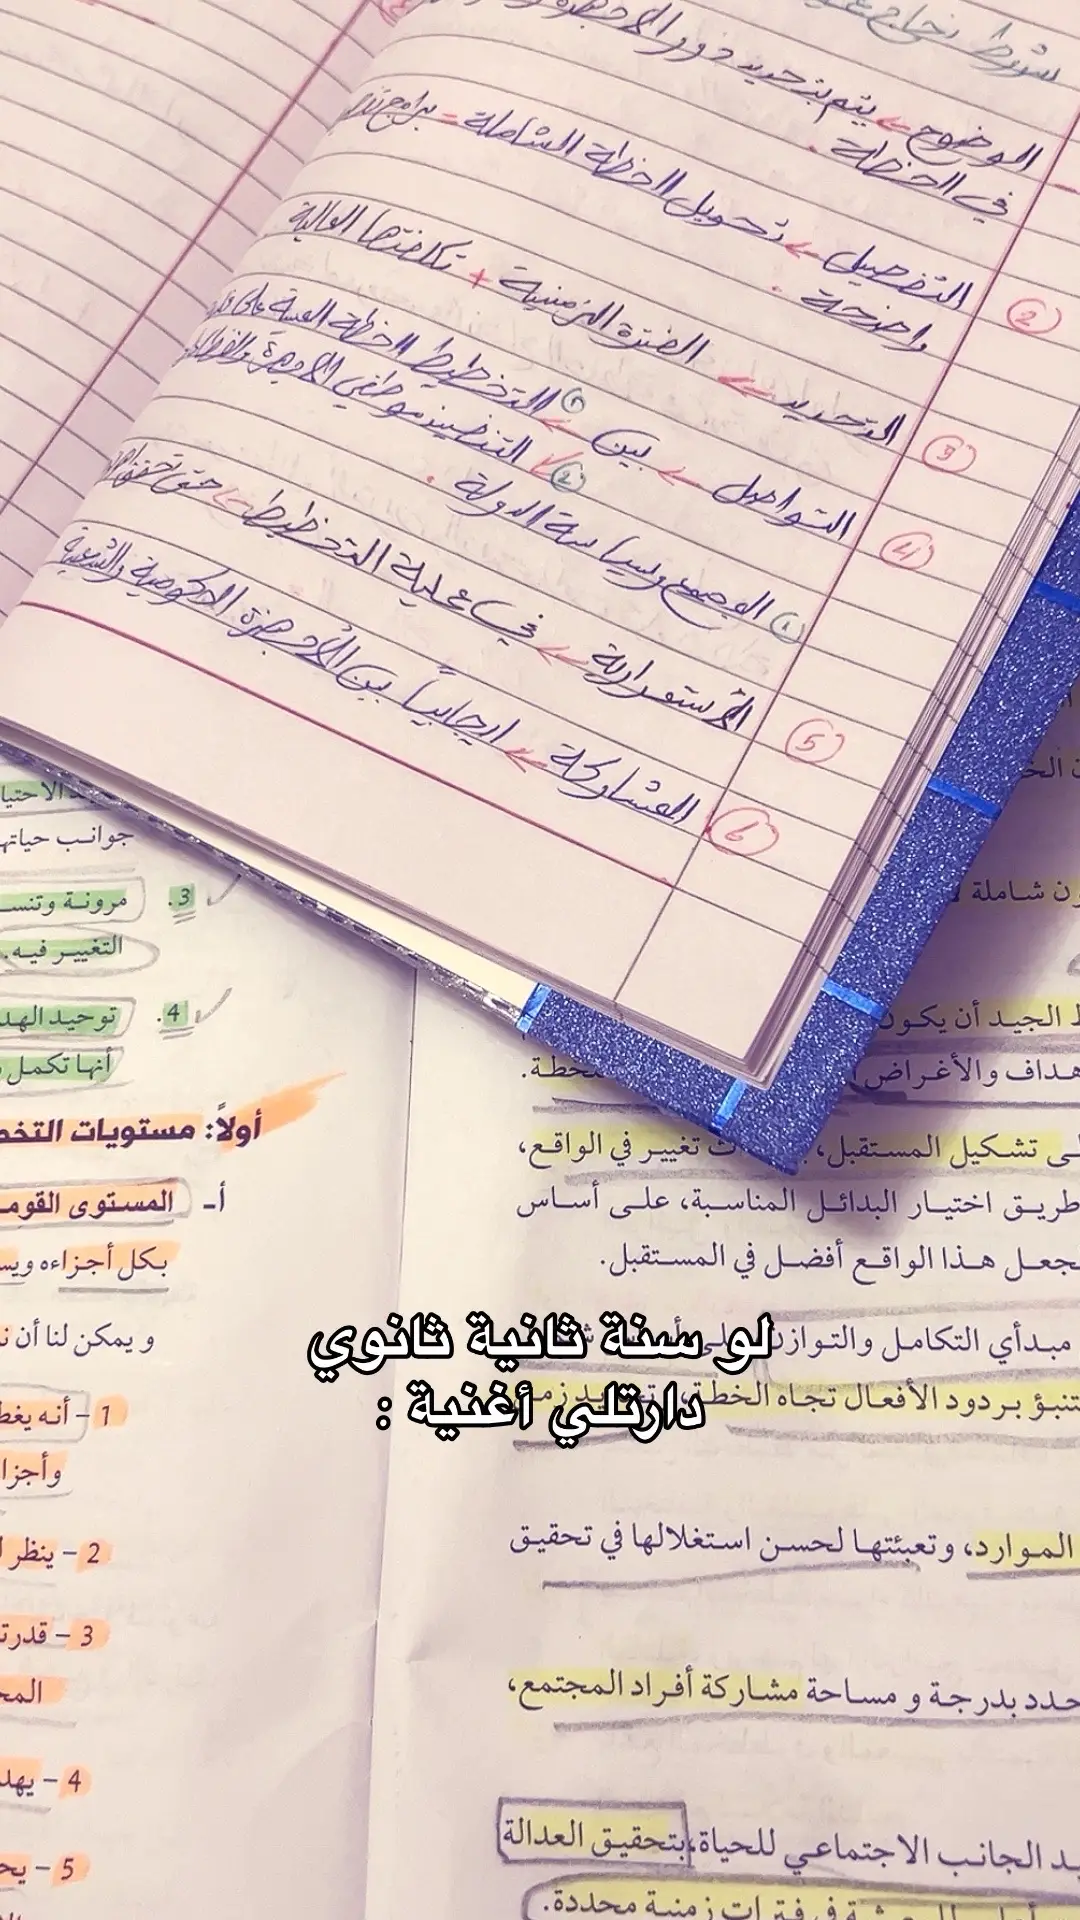 الوضوح ← يتم بتحديد دور الأجهزة
في الخطة.
② التفصيل ← تحويل الخطة الشاملة - برامج
واضحة.
③ التحديد ← الفترة الزمنية + تكلفتها المالية
④ التواصل ← بين ← ① التخطيط الخطة المبنية على
② التنفيذ موظفي الأجهزة
① الوضع وسياسة الدولة.
⑤ الاستمرارية ← في عملية التخطيط ← حتى تحقق
⑥ المشاركة ← ايجابياً بين الأجهزة الحكومية والشعبية
الاحتيا
جوانب حياته
3. مرونة وتنس
التغيير فيه.
4. توحيد الهد
أنها تكمل
أولاً: مستويات التخط
أ- المستوى القوم
بكل أجزاءه ويس
و يمكن لنا أن ن
1 - أنه يغط
وأجزا
2 - ينظر ا
3 - قدرت
المح
4 - يهد
5 - يح
ن شاملة
ط الجيد أن يكون
هداف والأغراض
لخطة.
لى تشكيل المستقبل، تغيير في الواقع،
طريق اختيار البدائل المناسبة، على أساس
جعل هذا الواقع أفضل في المستقبل.
مبدأي التكامل والتوازن
تنبؤ بردود الأفعال تجاه الخطة،
لو سنة ثانية ثانوي
دارتلي أغنية :
الموارد، وتعبئتها لحسن استغلالها في تحقيق
حدد بدرجة و مساحة مشاركة أفراد المجتمع،
د الجانب الاجتماعي للحياة، بتحقيق العدالة
في فترات زمنية محددة.